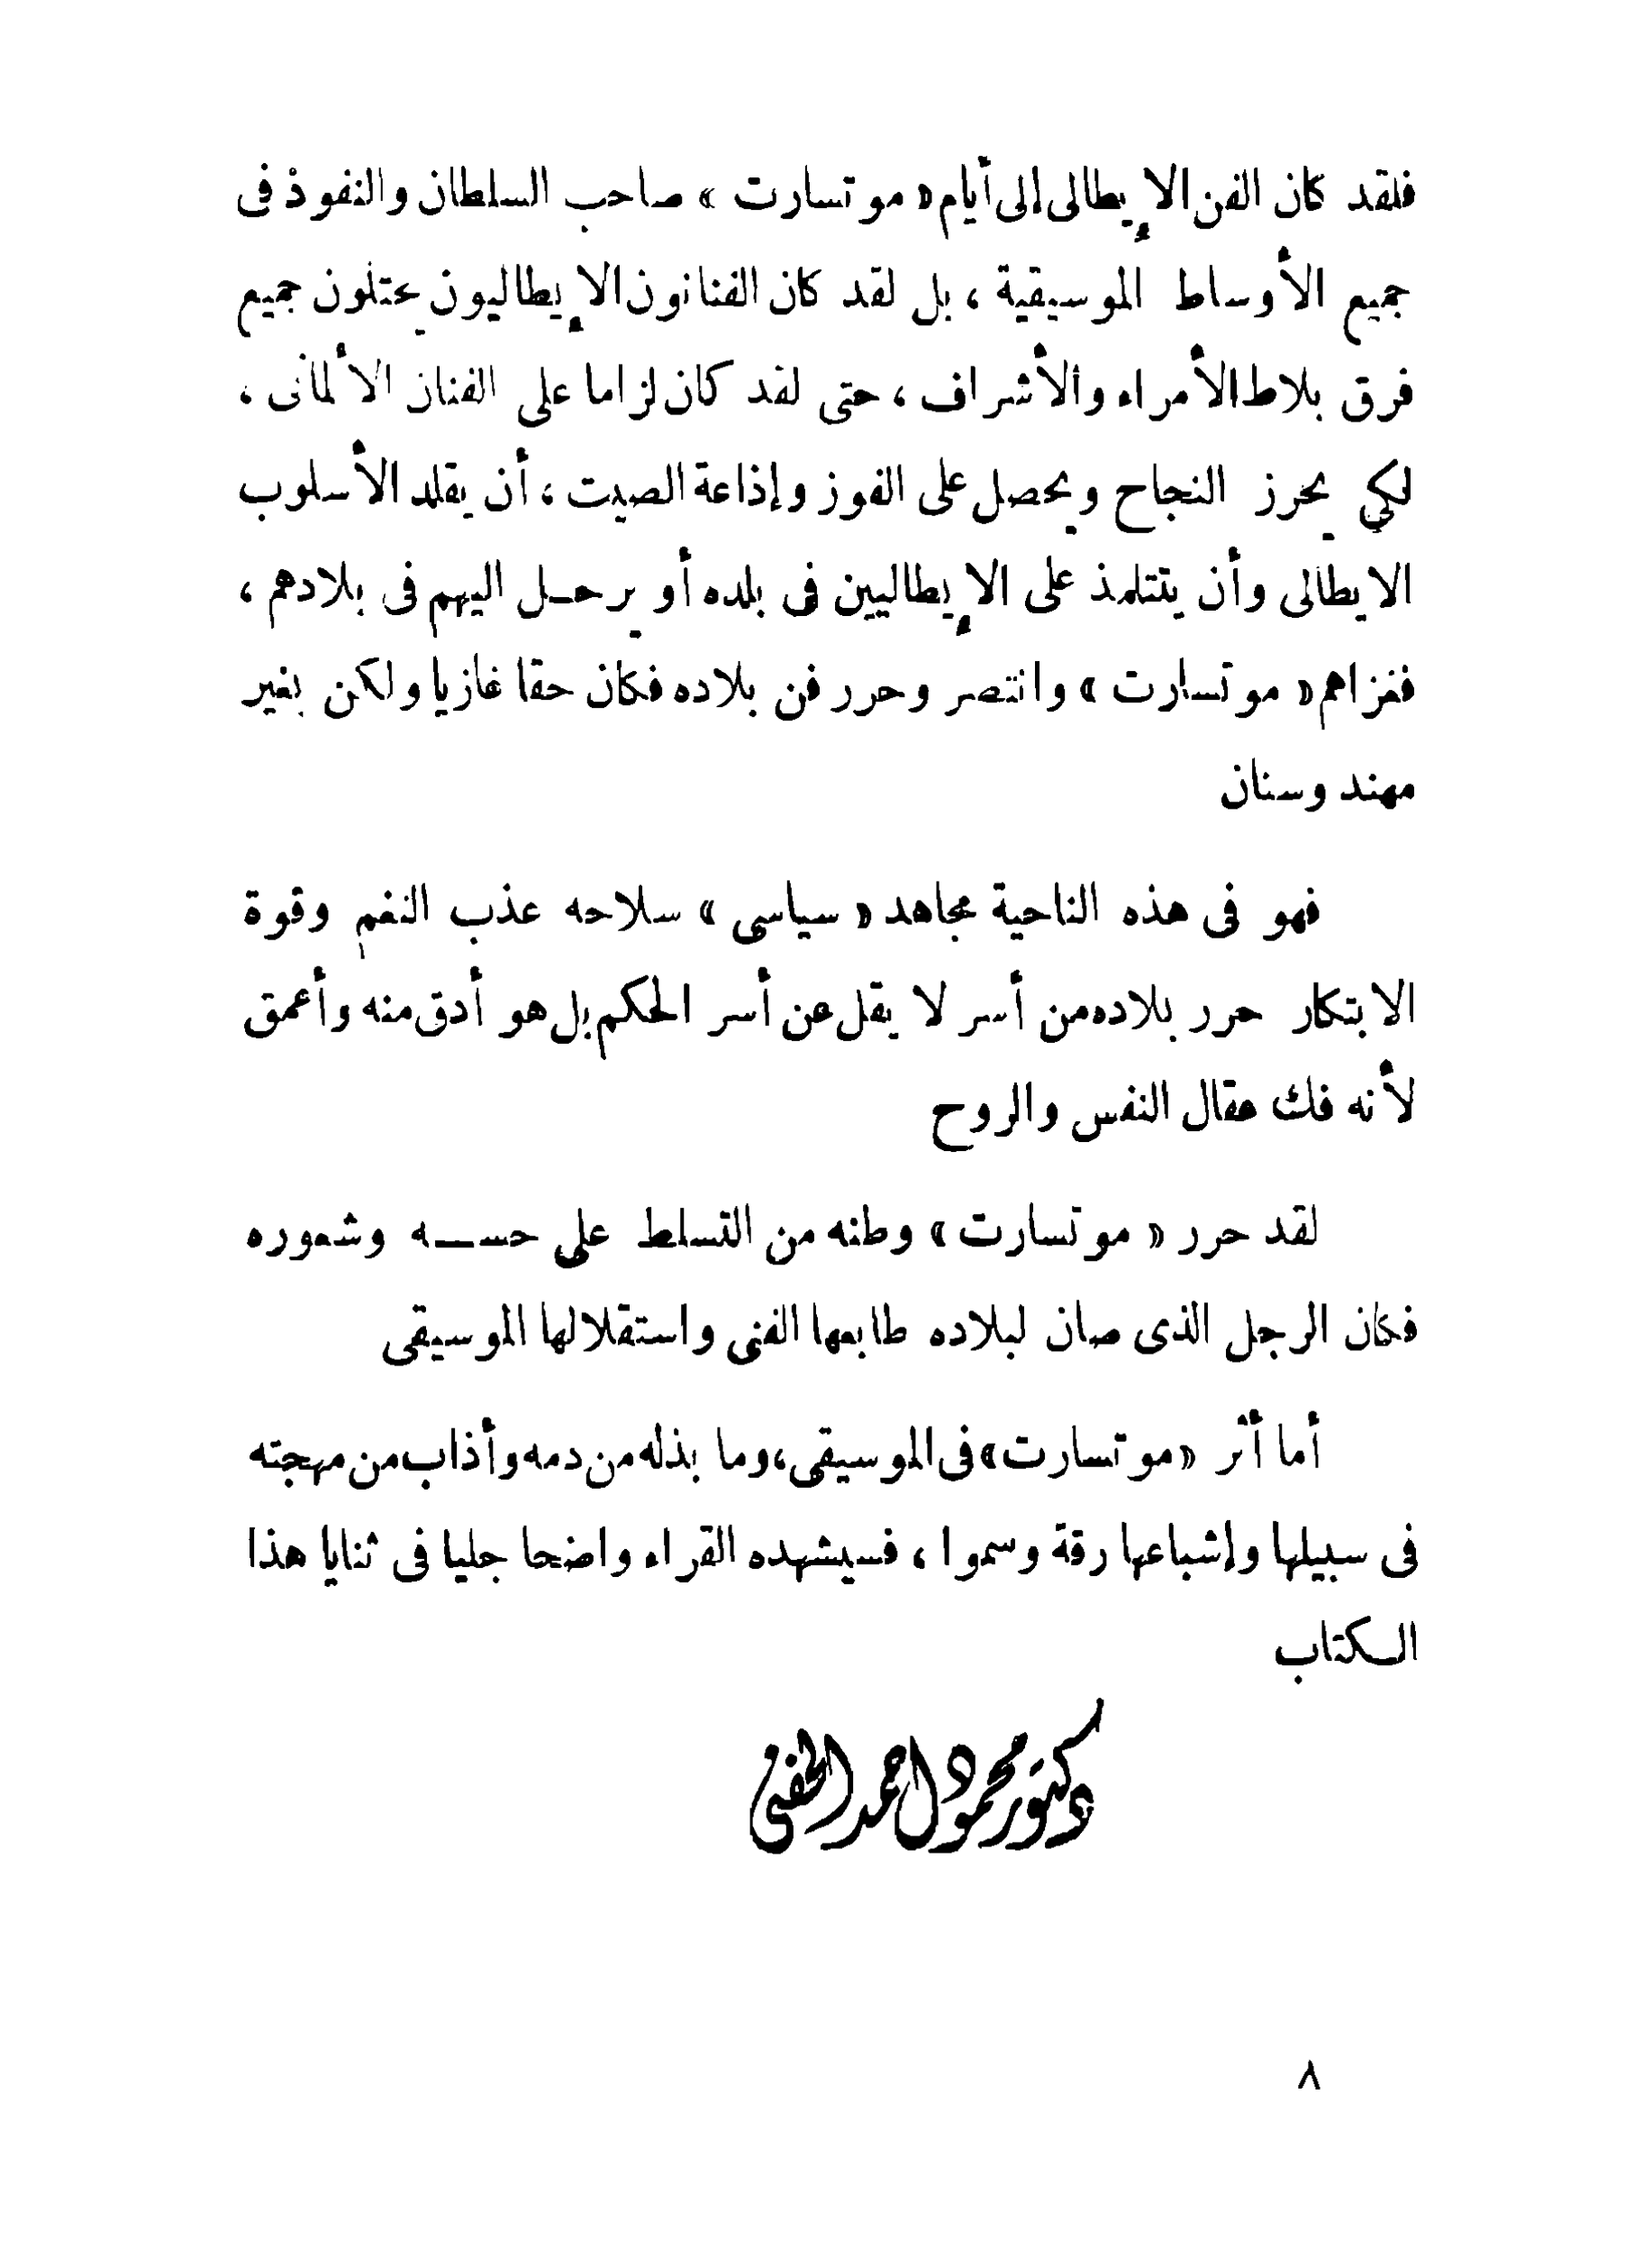 فلقد كان الفن الإيطالى إلى أيام « موتسارت » صاحب السلطان والنفوذ فى
جميع الأوساط الموسيقية ، بل لقد كان الفنانون الإيطاليون يحتلون جميع
فرق بلاط الأمراء والأشراف ، حتى لقد كان لزاما على الفنان الألمانى ،
لكي يحرز النجاح ويحصل على الفوز وإذاعة الصيت ، أن يقلد الأسلوب
الايطالى وأن يتتلمذ على الإيطاليين فى بلده أو يرحل اليهم فى بلادهم ،
فغزاهم « موتسارت » وانتصر وحرر فن بلاده فكان حقا غازيا ولكن بغير
مهند وسنان
فهو فى هذه الناحية مجاهد « سياسى » سلاحه عذب النغم وقوة
الابتكار حرر بلاده من أسر لا يقل عن أسر الحكم بل هو أدق منه وأعمق
لأنه فك عقال النفس والروح
لقد حرر « موتسارت » وطنه من التسلط على حســه وشعوره
فكان الرجل الذى صان لبلاده طابعها الفنى واستقلالها الموسيقى
أما أثر « موتسارت » فى الموسيقى، وما بذله من دمه وأذاب من مهجته
فى سبيلها وإشباعها رقة وسموا ، فسيشهده القراء واضحا جليا فى ثنايا هذا
الكتاب
دكتور محمود احمد الحفنى
٨